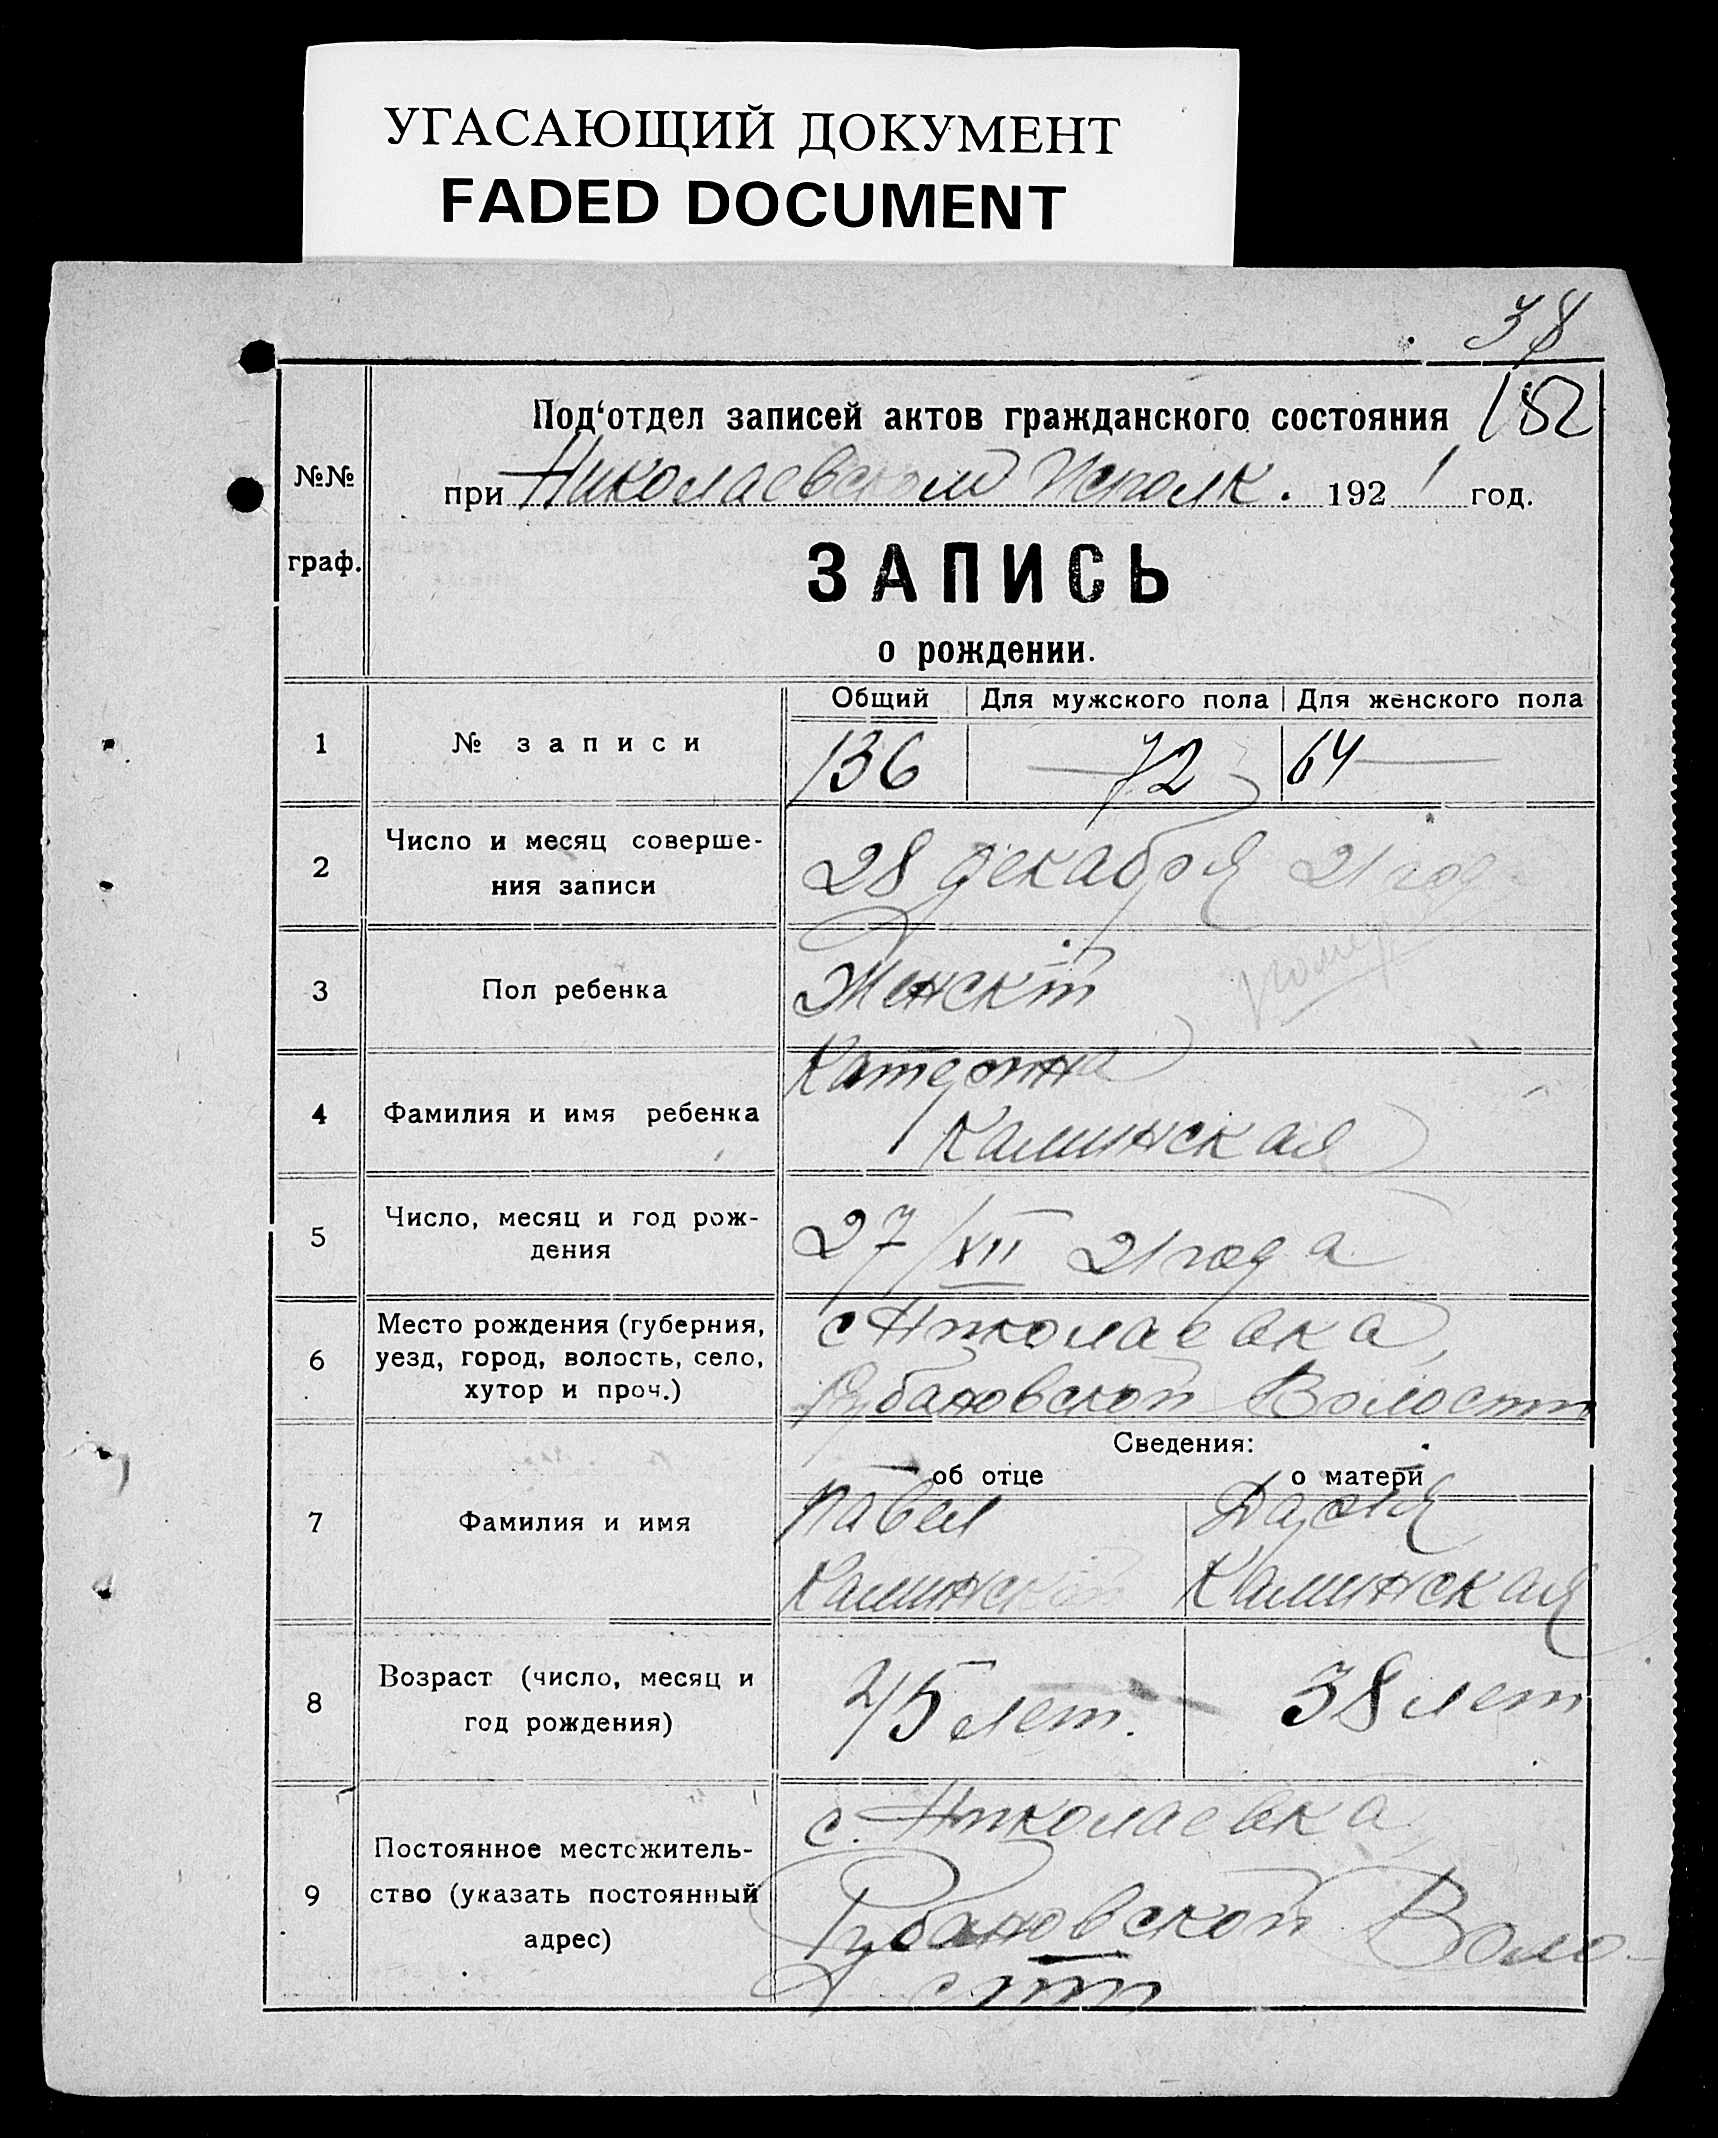 УГАСАЮЩИЙ ДОКУМЕНТ
FADED DOCUMENT
38
152
Под‘отдел записей актов гражданского состояния
при Николаевском Исполк. 1921 год.
№№
граф.
ЗАПИСЬ
о рождении.
Общий Для мужского пола Для женского пола
1 № записи 136 72 64
2 Число и месяц соверше-
ния записи
28 декабря 21 год
3 Пол ребенка Женскій
4 Фамилия и имя ребенка
Катерина
Калинская
5 Число, месяц и год рож-
дения
27/XII 21 года
6 Место рождения (губерния,
уезд, город, волость, село,
хутор и проч.)
с Николаевка,
Рубановской Волости
Сведения:
об отце о матери
7 Фамилия и имя
Павел Дария
Калинской Калинская
8 Возраст (число, месяц и
год рождения)
45 лет. 38 лет
9 Постоянное местожитель-
ство (указать постоянный
адрес)
с. Николаевка,
Рубановской Воло-
сти